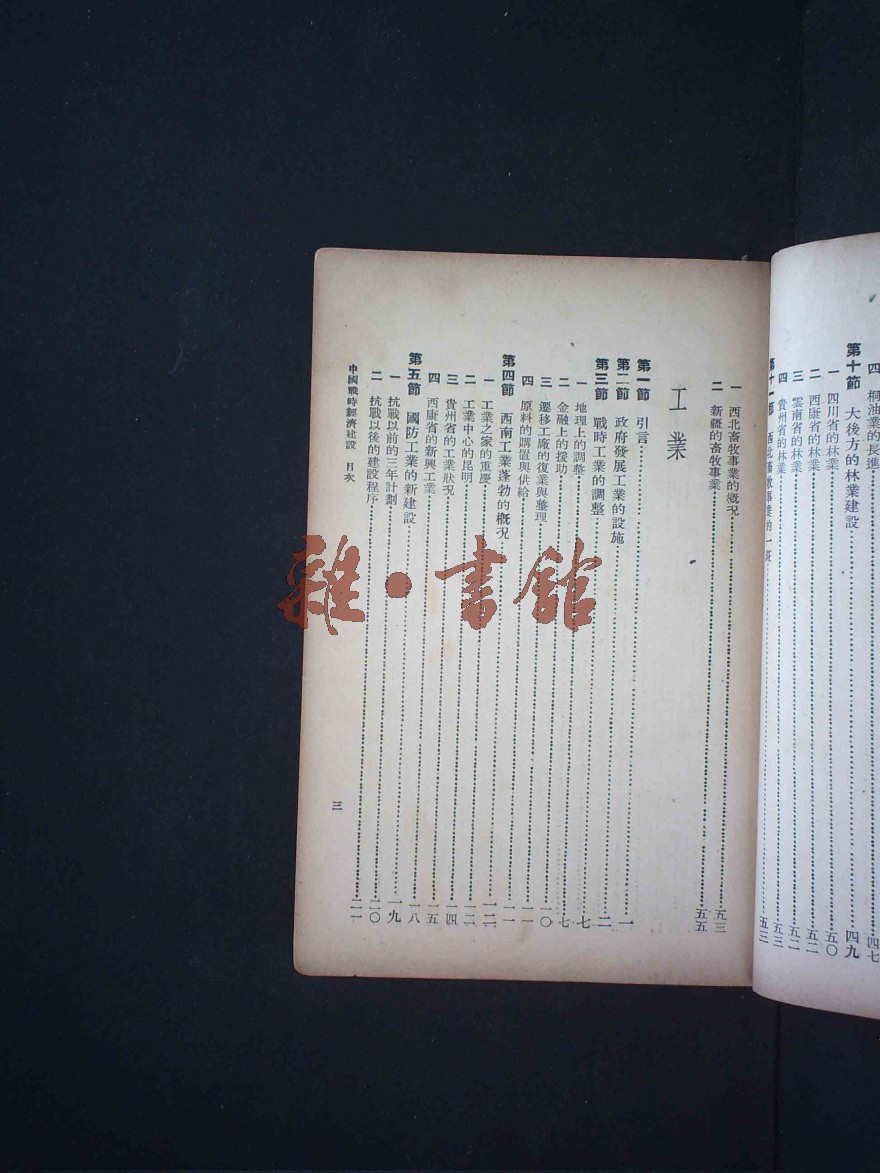 四 桐油業的長進……四七
第十節 大後方的林業建設……四九
一 四川省的林業……五〇
二 西康省的林業……五二
三 雲南省的林業……五二
四 貴州省的林業……五三
第十一節 西北畜牧事業的一班……五三
一 西北畜牧事業的概況……五三
二 新疆的畜牧事業……五五
工業
第一節 引言……一
第二節 政府發展工業的設施……二
第三節 戰時工業的調整……七
一 地理上的調整……七
二 金融上的援助……一〇
三 遷移工廠的復業與整理……一一
四 原料的購置與供給……一一
第四節 西南工業蓬勃的概況……一二
一 工業之家的重慶……一二
二 工業中心的昆明……一四
三 貴州省的工業狀況……一五
四 西康省的新興工業……一八
第五節 國防工業的新建設……一九
一 抗戰以前的三年計劃……二〇
二 抗戰以後的建設程序……二一
中國戰時經濟建設 目次
三
雜·書館